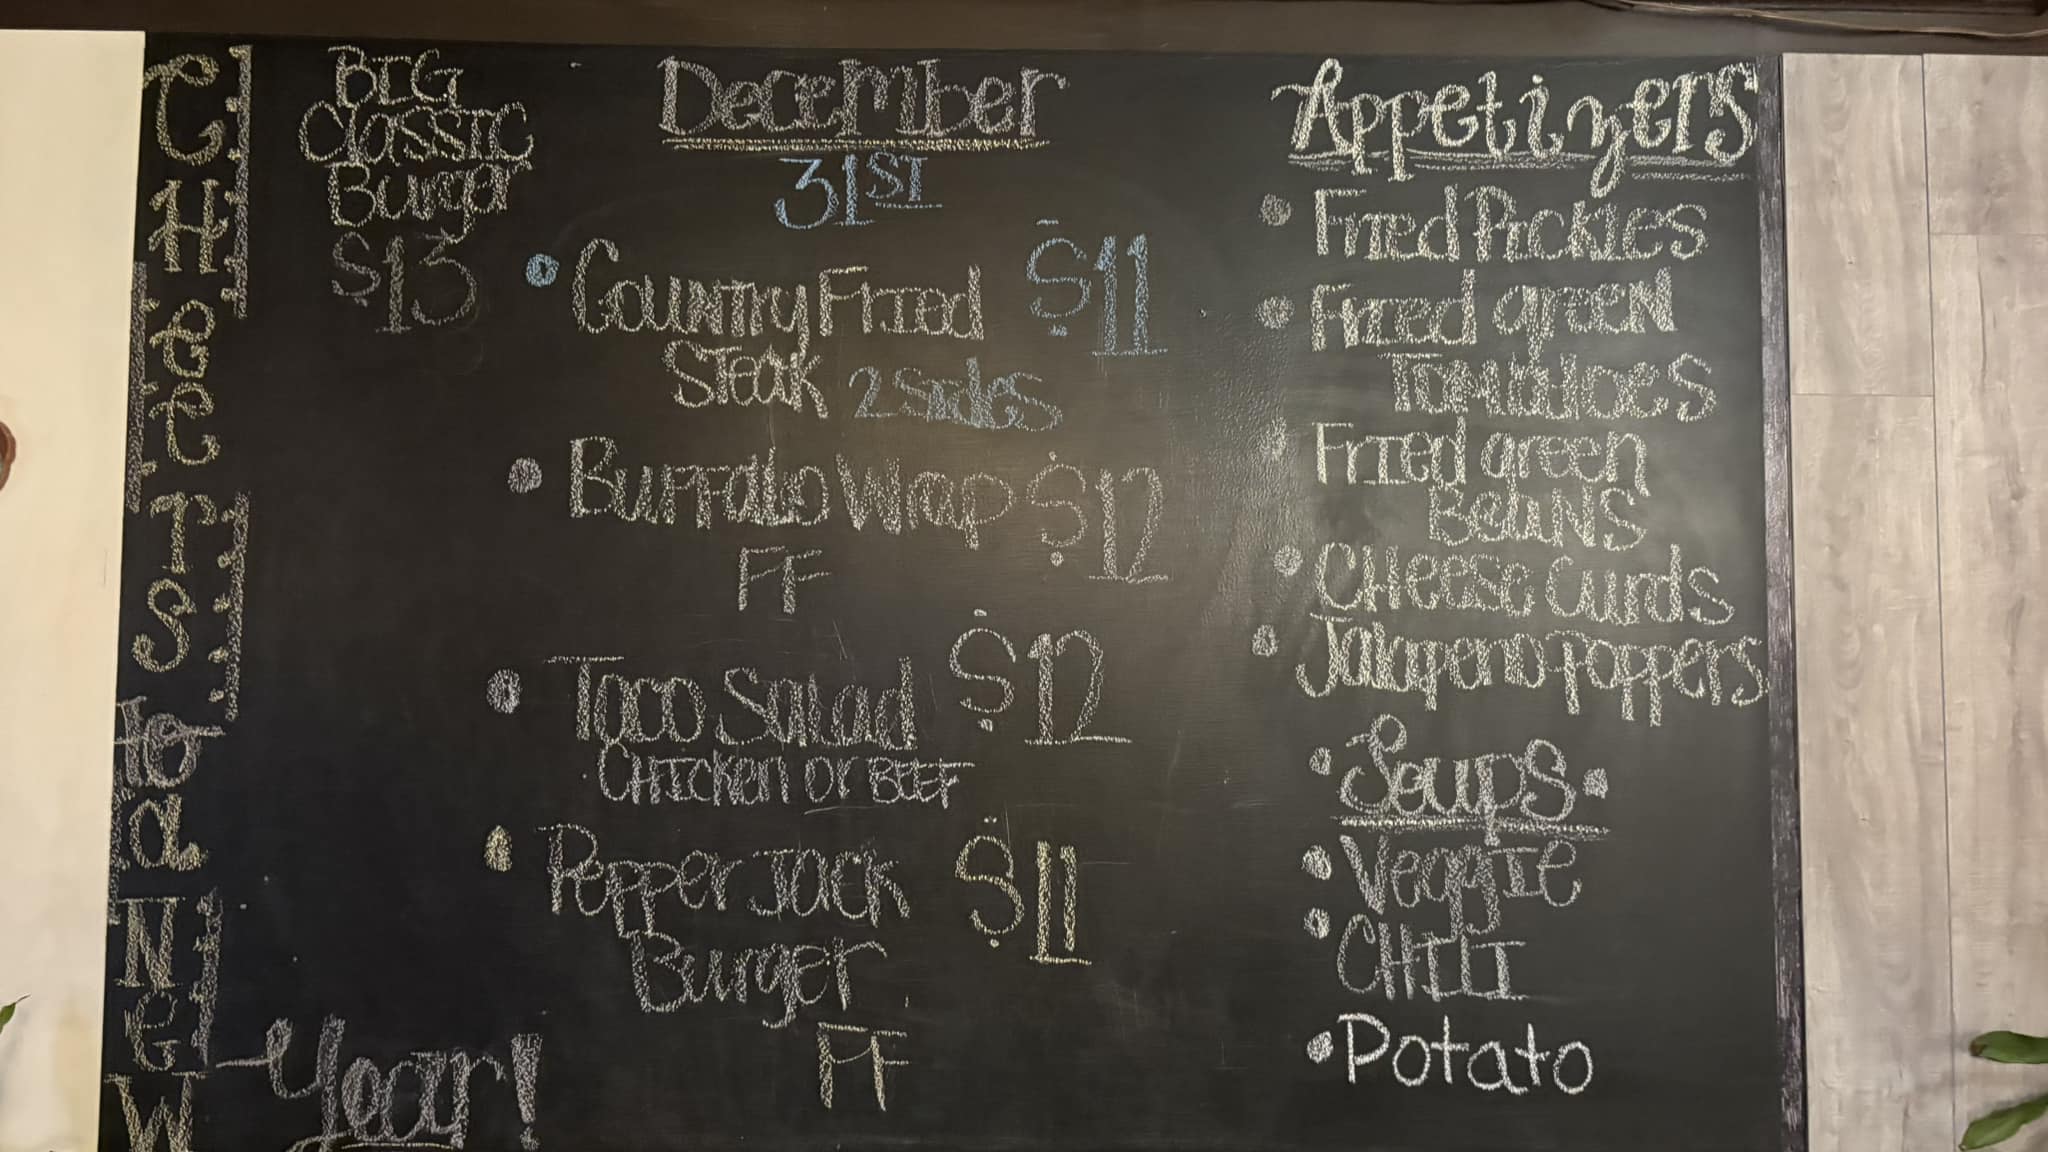 CHeers
to
a
New
Year!
BIG
Classic
Burger
$13
December
31ST
Country Fried $11
Steak 2 sides
Buffalo Wrap $12
FF
Taco Salad $12
CHicken or BEEF
Pepper Jack $11
Burger
FF
Appetizers
Fried Pickles
Fried green
Tomatoes
Fried green
BeaNS
CHeese Curds
Jalapeno Poppers
Soups
Veggie
CHILI
Potato